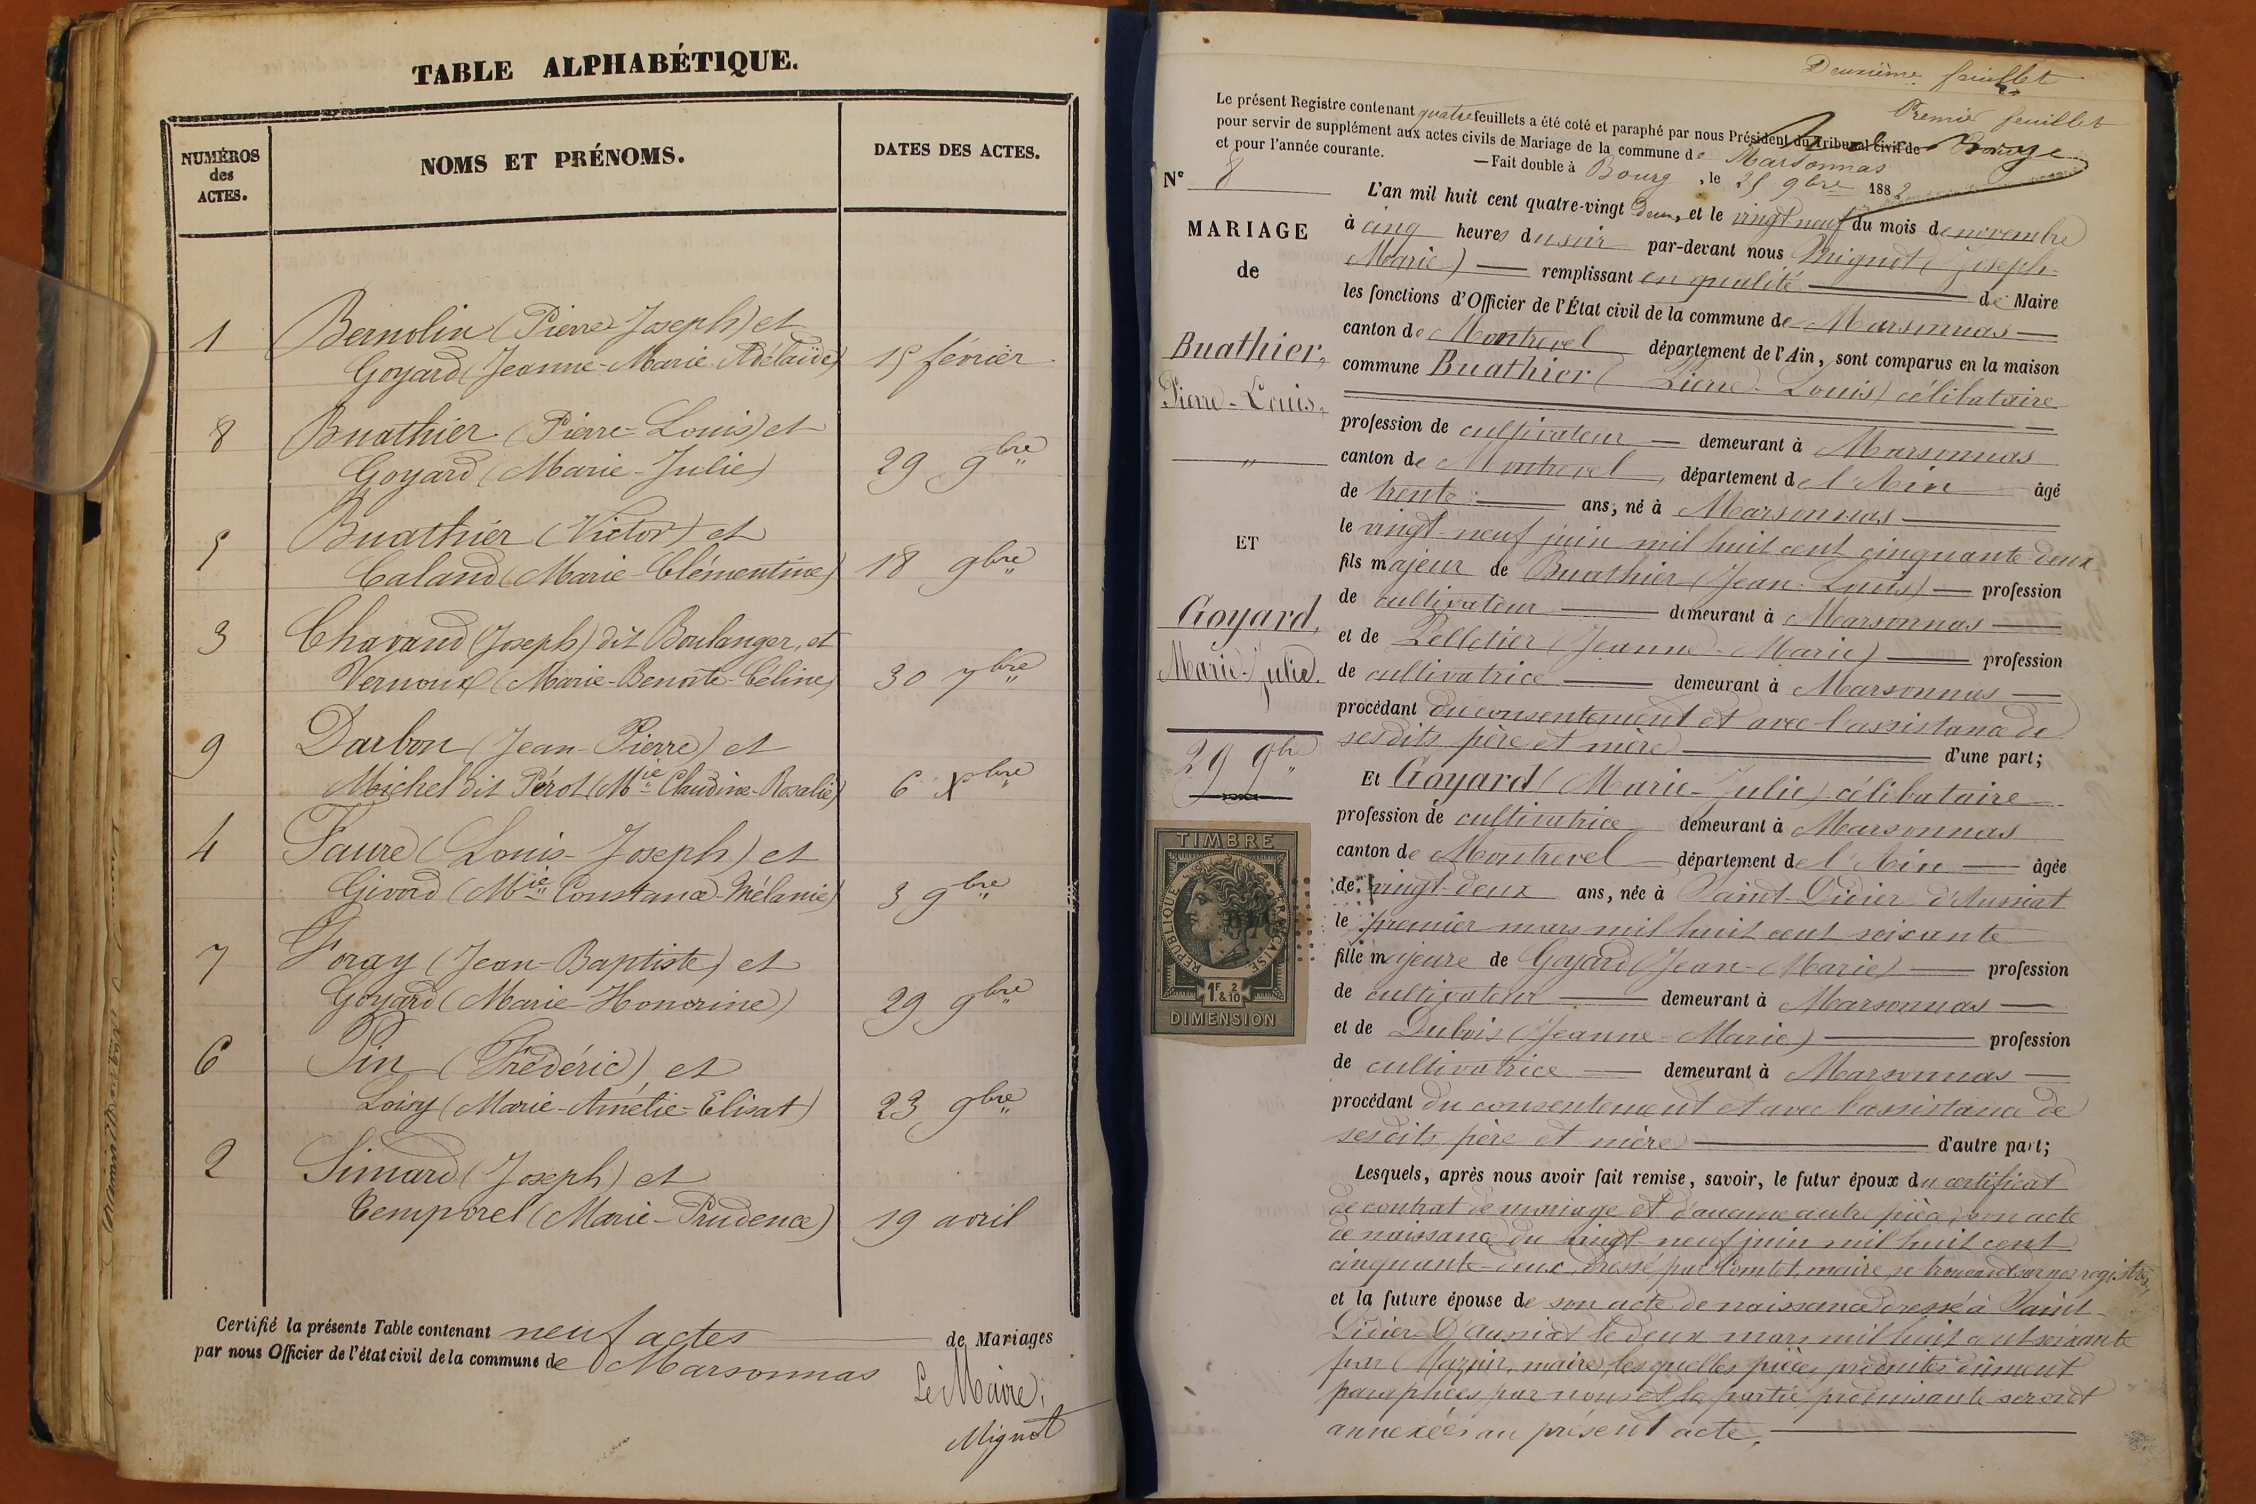 TABLE ALPHABÉTIQUE.
NUMÉROS
des
ACTES.
NOMS ET PRÉNOMS.
DATES DES ACTES.
1 Bernolin (Pierre-Joseph) et
Goyard (Jeanne-Marie Adélaïde) 15 février
8 Buathier (Pierre-Louis) et
Goyard (Marie-Julie) 29 9bre
5 Buathier (Victor) et
Caland (Marie-Clémentine) 18 9bre
3 Chavand (Joseph) dit Boulanger, et
Vernoux (Marie-Benoîte-Céline) 30 7bre
9 Darbon (Jean-Pierre) et
Michel dit Pérot (Mie Claudine-Rosalie) 6 Xbre
4 Faure (Louis-Joseph) et
Givord (Mie Constance-Mélanie) 3 9bre
7 Foray (Jean-Baptiste) et
Goyard (Marie-Honorine) 29 9bre
6 Pin (Frédéric) et
Loisy (Marie-Amélie-Elisat) 23 9bre
2 Simard (Joseph) et
Temporel (Marie-Prudence) 19 avril
Certifié la présente Table contenant neuf actes de Mariages
par nous Officier de l'état civil de la commune de Marsonnas
Le Maire,
Mignot
Deuxième feuillet
Premier feuillet
Le présent Registre contenant quatre feuillets a été coté et paraphé par nous Président du Tribunal Civil de Bourg
pour servir de supplément aux actes civils de Mariage de la commune de Marsonnas
et pour l'année courante. — Fait double à Bourg, le 25 9bre 1882
N° 8
MARIAGE
de
Buathier,
Pierre-Louis,
"
ET
Goyard,
Marie-Julie.
29 9bre
TIMBRE
RÉPUBLIQUE FRANÇAISE
1F. 2 & 10
DIMENSION
L'an mil huit cent quatre-vingt deux, et le vingt neuf du mois de novembre
à cinq heures du soir par-devant nous Mignot (Joseph-
Marie) remplissant en qualité de Maire
les fonctions d'Officier de l'État civil de la commune de Marsonnas
canton de Montrevel département de l'Ain, sont comparus en la maison
commune Buathier (Pierre-Louis) célibataire
profession de cultivateur demeurant à Marsonnas
canton de Montrevel, département de l'Ain âgé
de trente ans, né à Marsonnas
le vingt-neuf juin mil huit cent cinquante-deux
fils majeur de Buathier (Jean-Louis) profession
de cultivateur demeurant à Marsonnas
et de Pelletier (Jeanne-Marie) profession
de cultivatrice demeurant à Marsonnas
procédant du consentement et avec l'assistance de
ses dits père et mère d'une part;
Et Goyard (Marie-Julie) célibataire
profession de cultivatrice demeurant à Marsonnas
canton de Montrevel département de l'Ain âgée
de vingt-deux ans, née à Saint-Didier d'Aussiat
le premier mars mil huit cent soixante
fille majeure de Goyard (Jean-Marie) profession
de cultivateur demeurant à Marsonnas
et de Dubois (Jeanne-Marie) profession
de cultivatrice demeurant à Marsonnas
procédant du consentement et avec l'assistance de
ses dits père et mère d'autre part;
Lesquels, après nous avoir fait remise, savoir, le futur époux du certificat
de contrat de mariage et d'aucune autre pièce, son acte
de naissance du vingt-neuf juin mil huit cent
cinquante-deux, dressé par Comtet, maire, se trouvant sur nos registres,
et la future épouse de son acte de naissance dressé à Saint-
Didier-D'Aussiat le deux mars mil huit cent soixante
par maire, lesquelles pièces produites dûment
paraphées par nous et la partie produisante seront
annexées au présent acte.